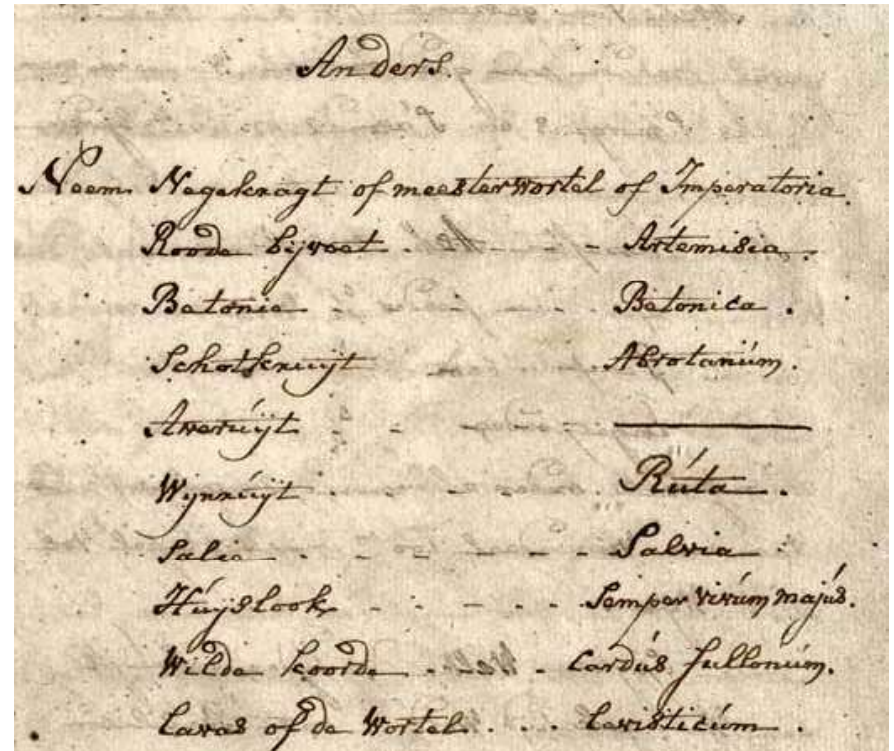 Anders.
Neem Negekragt of meesterwortel of Imperatoria.
Roode bijvoet . - - - - Artemisia.
Betonie - - - - Betonica.
Schotkruijt - - Abrotanúm.
Averúijt - - ———
Wijnrúijt - - - Rúta.
Salie - - - - - Salvia
Húijslook - - - - Semper vivúm majús.
Wilde koorde - - - Cardús fullonúm.
Lavas of de Wortel . . . Levisticúm.